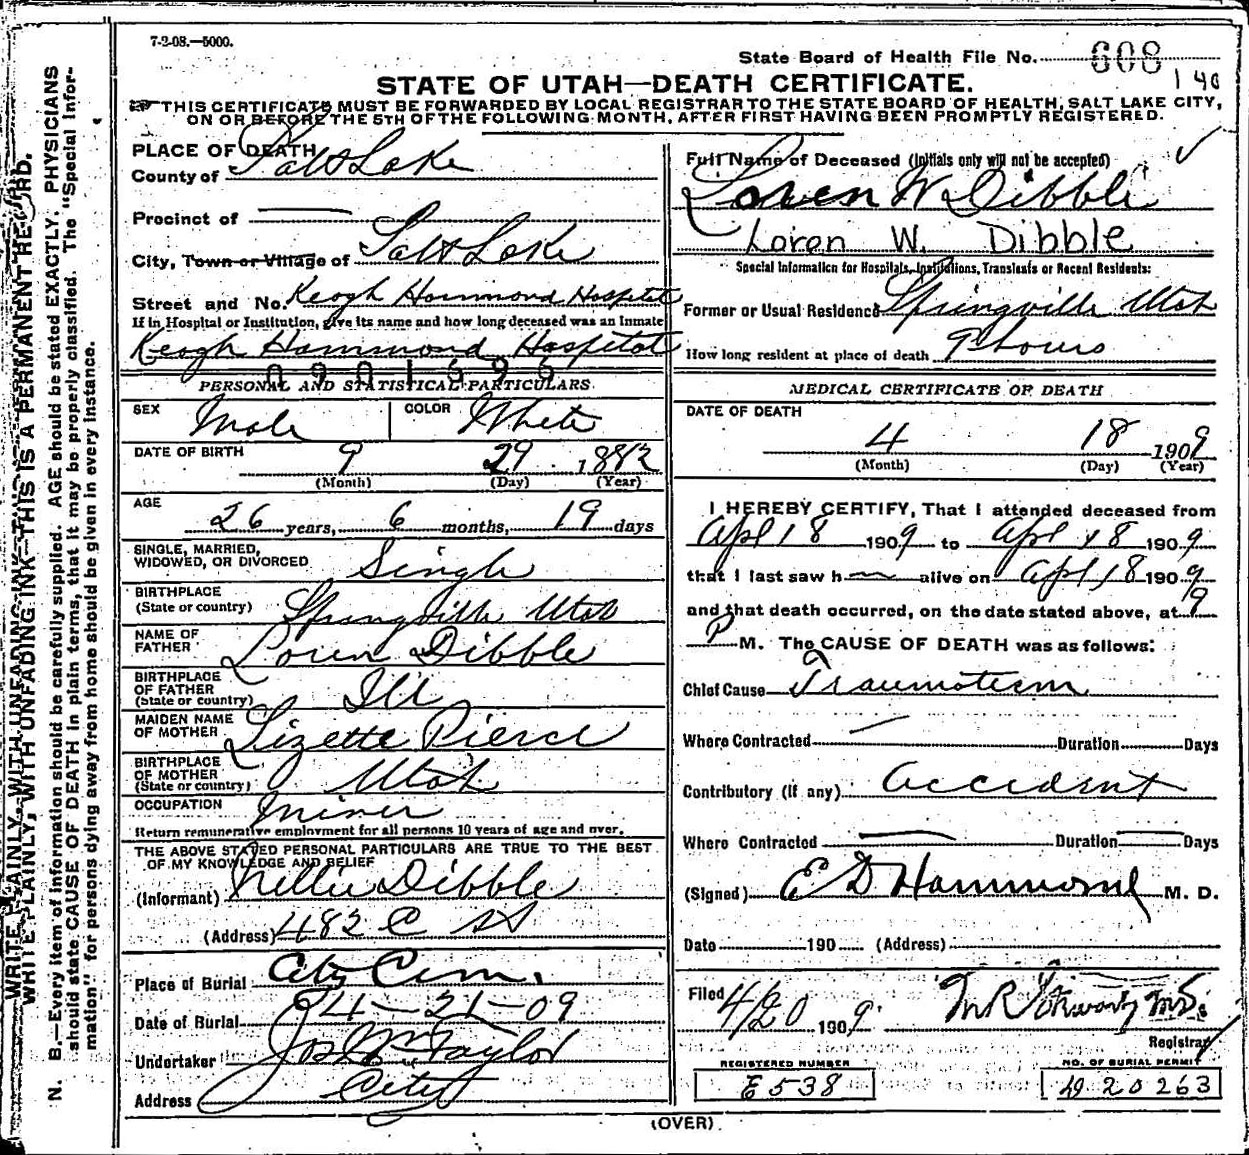 7-2-08.—5000.
State Board of Health File No. 608
1 40
STATE OF UTAH—DEATH CERTIFICATE.
THIS CERTIFICATE MUST BE FORWARDED BY LOCAL REGISTRAR TO THE STATE BOARD OF HEALTH, SALT LAKE CITY,
ON OR BEFORE THE 5TH OF THE FOLLOWING MONTH, AFTER FIRST HAVING BEEN PROMPTLY REGISTERED.
WRITE PLAINLY, WITH UNFADING INK—THIS IS A PERMANENT RECORD.
N. B.—Every item of information should be carefully supplied. AGE should be stated EXACTLY. PHYSICIANS
should state CAUSE OF DEATH in plain terms, that it may be properly classified. The "Special Infor-
mation" for persons dying away from home should be given in every instance.
PLACE OF DEATH
County of Salt Lake
Precinct of —
City, Town or Village of Salt Lake
Street and No. Keogh Hammond Hospital
If in Hospital or Institution, give its name and how long deceased was an Inmate
Keogh Hammond Hospital
0901696
PERSONAL AND STATISTICAL PARTICULARS
SEX Male COLOR White
DATE OF BIRTH 9 29 1882
(Month) (Day) (Year)
AGE 26 years, 6 months, 19 days
SINGLE, MARRIED,
WIDOWED, OR DIVORCED Single
BIRTHPLACE
(State or country) Springville Utah
NAME OF
FATHER Loren Dibble
BIRTHPLACE
OF FATHER
(State or country) Ill
MAIDEN NAME
OF MOTHER Lizette Pierce
BIRTHPLACE
OF MOTHER
(State or country) Utah
OCCUPATION Miner
Return remunerative employment for all persons 10 years of age and over.
THE ABOVE STATED PERSONAL PARTICULARS ARE TRUE TO THE BEST
OF MY KNOWLEDGE AND BELIEF
(Informant) Nellie Dibble
(Address) 482 C St
Place of Burial City Cem.
Date of Burial 4-21-09
Undertaker Jos Wm Taylor
Address City
Full Name of Deceased (Initials only will not be accepted)
Loren W Dibble
Loren W. Dibble
Special Information for Hospitals, Institutions, Transients or Recent Residents:
Former or Usual Residence Springville Utah
How long resident at place of death 9 hours
MEDICAL CERTIFICATE OF DEATH
DATE OF DEATH
4 18 1909
(Month) (Day) (Year)
I HEREBY CERTIFY, That I attended deceased from
Apl 18 1909 to Apl 18 1909
that I last saw h alive on Apl 18 1909
and that death occurred, on the date stated above, at 9
P M. The CAUSE OF DEATH was as follows:
Chief Cause Traumatism
Where Contracted — Duration Days
Contributory (if any) Accident
Where Contracted — Duration — Days
(Signed) E D Hammond M. D.
Date 190 (Address)
Filed 4/20 1909. M R
Registrar
REGISTERED NUMBER
E538
NO. OF BURIAL PERMIT
20263
(OVER)